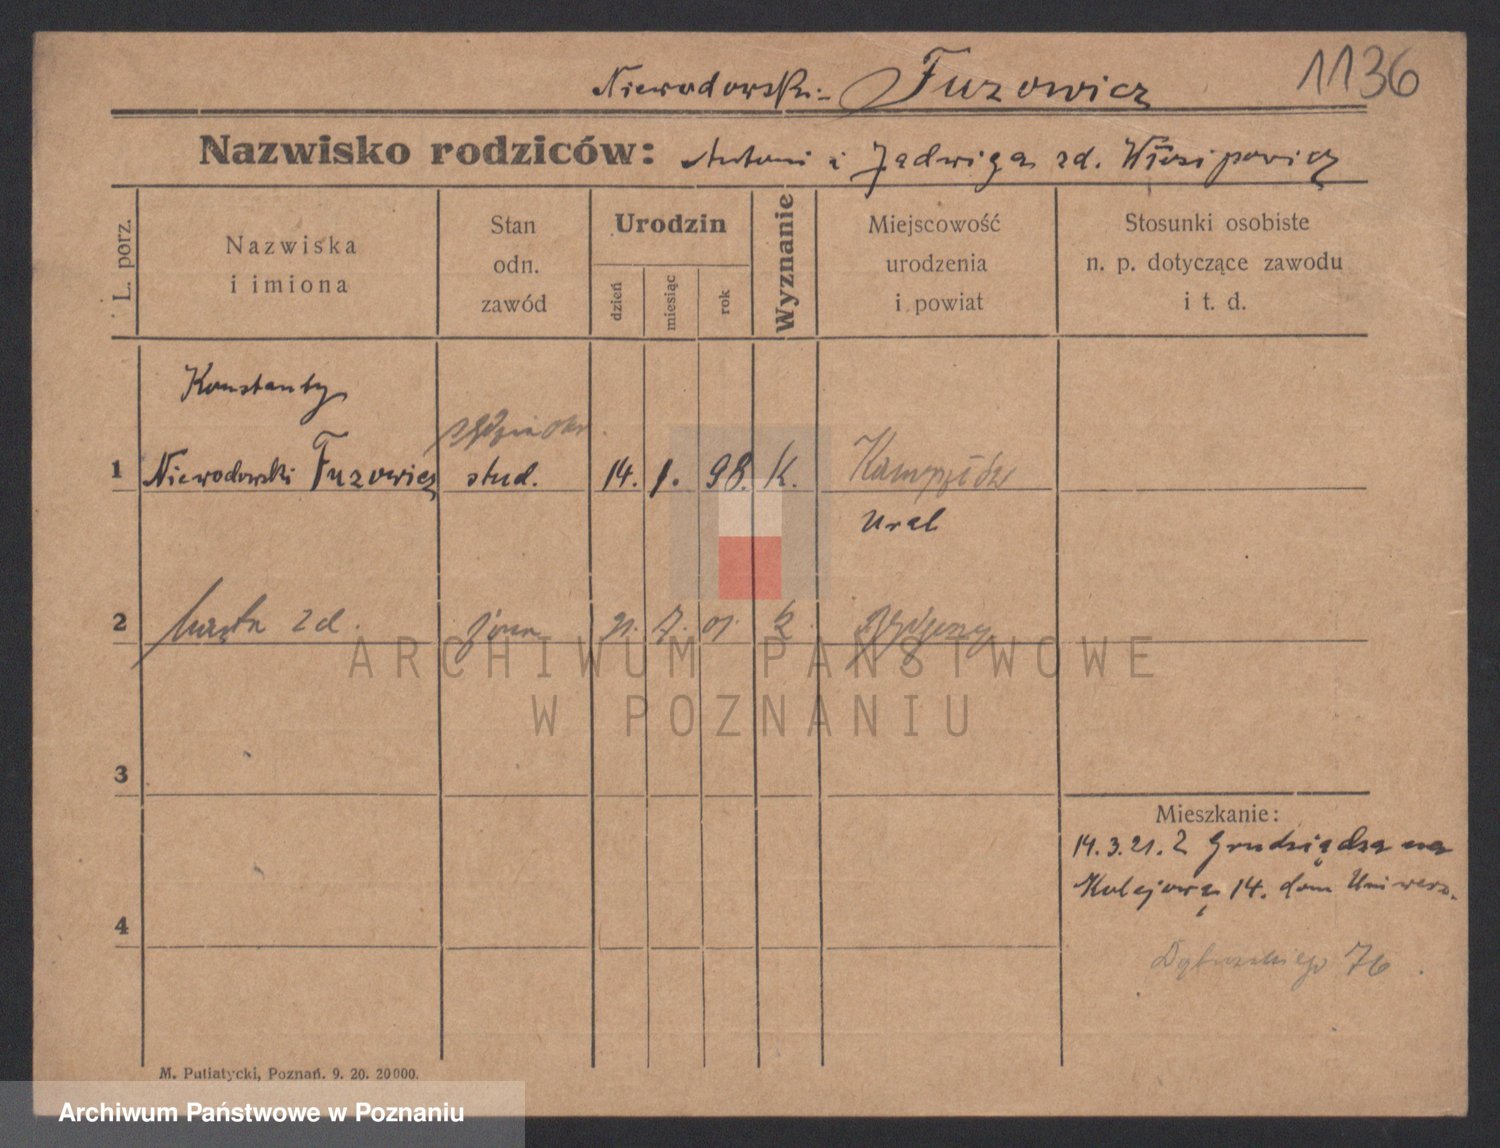 1136
Niewodowski - Fuzowicz
Nazwisko rodziców: Antoni i Jadwiga zd.
L. porz.
Nazwiska
i imiona
Stan
odn.
zawód
Urodzin
dzień
miesiąc
rok
Wyznanie
Miejscowość
urodzenia
i powiat
Stosunki osobiste
n. p. dotyczące zawodu
i t. d.
Konstanty
1 Niewodowski Fuzowicz stud. 14. 1. 98. K.
Ural
2 zd. żona 21. 7. 01. K
ARCHIWUM PAŃSTWOWE
W POZNANIU
3
4
Mieszkanie:
14.3.21. Z Grudziądza na
Kolejową 14. dom Uniwers.
76
M. Putiatycki, Poznań. 9. 20. 20000.
Archiwum Państwowe w Poznaniu